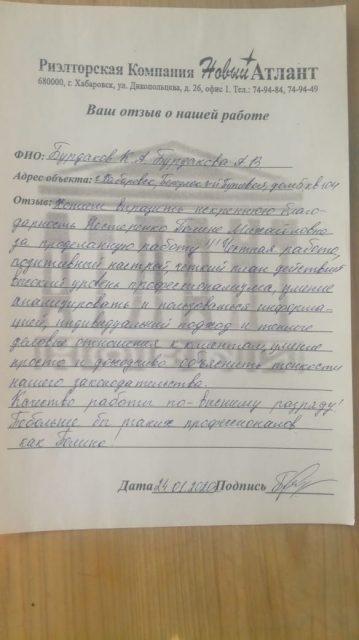 Риэлторская Компания Новый Атлант
680000, г. Хабаровск, ул. Дикопольцева, д. 26, офис 1. Тел.: 74-94-84, 74-94-49
Ваш отзыв о нашей работе
ФИО: Бурдаков К А Бурдакова А В
Адрес объекта: г. Хабаровск, дом 6 кв 104
Отзыв: Хотим выразить искреннюю благо-
дарность Нестеренко Галине Михайловне
за проделанную работу!!! Чёткая работа,
позитивный настрой, чёткий план действий
высокий уровень профессионализма, умение
анализировать и пользоваться информа-
цией, индивидуальный подход и тёплое
деловые отношения к клиентам, умение
просто и доходчиво объяснить тонкости
нашего законодательства.
Качество работы по-высшему разряду!
Побольше бы таких профессионалов
как Галина
Дата 24.01.2020 Подпись